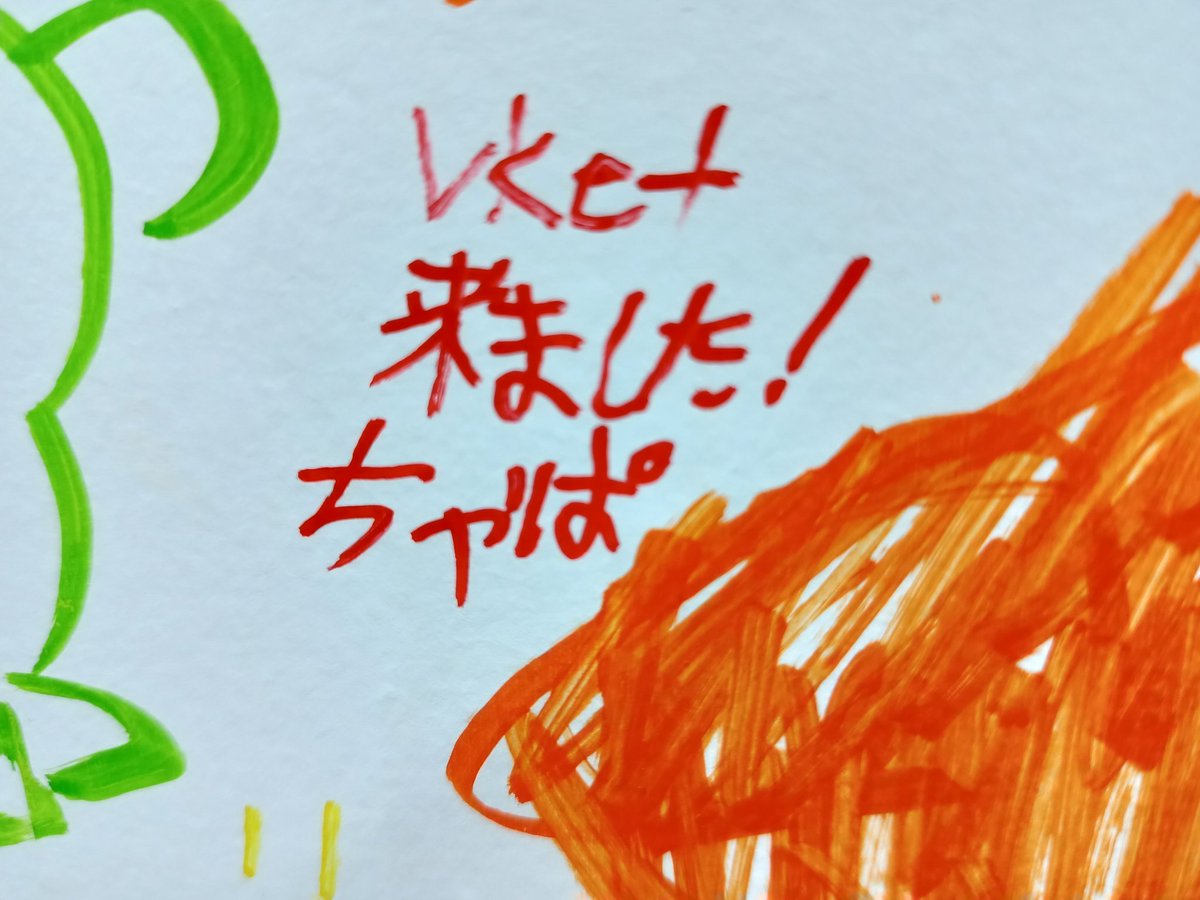 Vket
来ました!
ちゃぱ